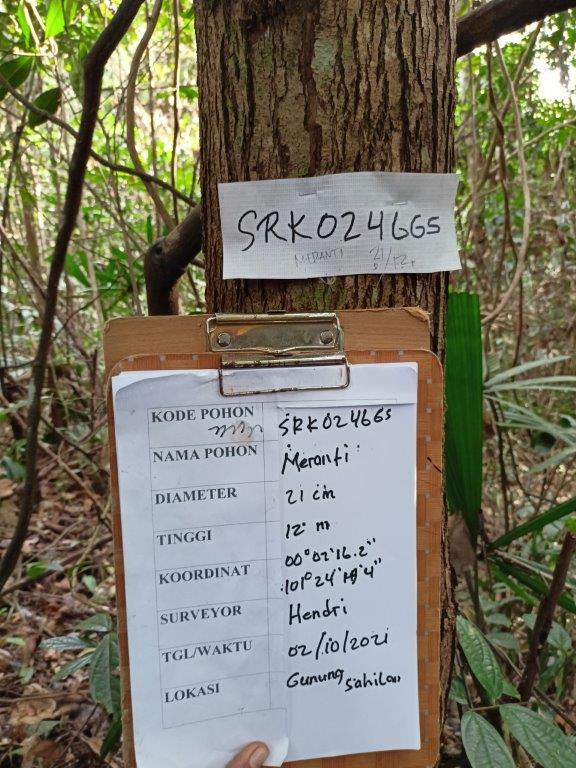 SRK0246GS
MERANTI 21/12
KODE POHON SRK0246GS
NAMA POHON Meranti
DIAMETER 21 cm
TINGGI 12 m
KOORDINAT 00°02'16.2"
101°24' 4"
SURVEYOR Hendri
TGL/WAKTU 02/10/2021
LOKASI Gunung Sahilan